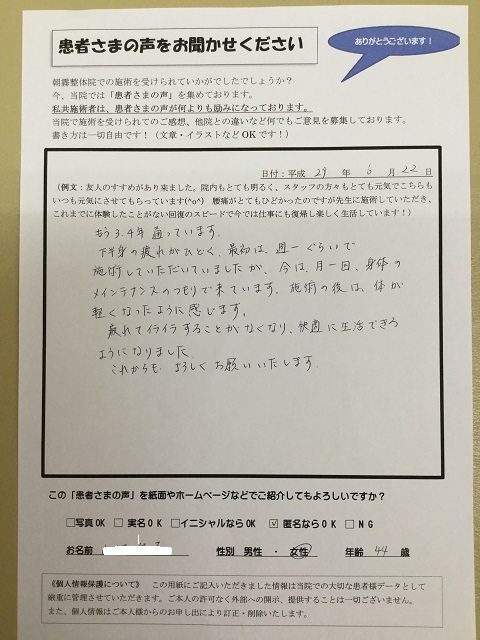 患者さまの声をお聞かせください
ありがとうございます！
朝霧整体院での施術を受けられていかがでしたでしょうか？
今、当院では「患者さまの声」を集めております。
私共施術者は、患者さまの声が何よりも励みになっております。
当院で施術を受けられてのご感想、他院との違いなど何でもご意見を募集しております。
書き方は一切自由です！（文章・イラストなどOKです！）
日付：平成 29 年 6 月 22 日
（例文：友人のすすめがあり来ました。院内もとても明るく、スタッフの方々もとても元気でこちらも
いつも元気にさせてもらっています(^o^) 腰痛がとてもひどかったのですが先生に施術していただき、
これまでに体験したことがない回復のスピードで今では仕事にも復帰し楽しく生活しています！）
もう3.4年通っています。
下半身の疲れがひどく、最初は週一ぐらいで
施術していただいていましたが、今は、月一回、身体の
メインテナンスのつもりで来ています。施術の後は、体が
軽くなったように感じます。
疲れてイライラすることがなくなり、快適に生活できる
ようになりました。
これからも よろしくお願いいたします。
この「患者さまの声」を紙面やホームページなどでご紹介してもよろしいですか？
□写真OK □ 実名OK □イニシャルならOK ☑ 匿名ならOK □ NG
お名前 性別 男性 ・ 女性 年齢 44 歳
《個人情報保護について》 この用紙にご記入いただきました情報は当院での大切な患者様データとして
厳重に管理させていただきます。ご本人の許可なく外部への開示、提供することは一切ございません。
また、個人情報はご本人様からのお申し出により訂正・削除いたします。